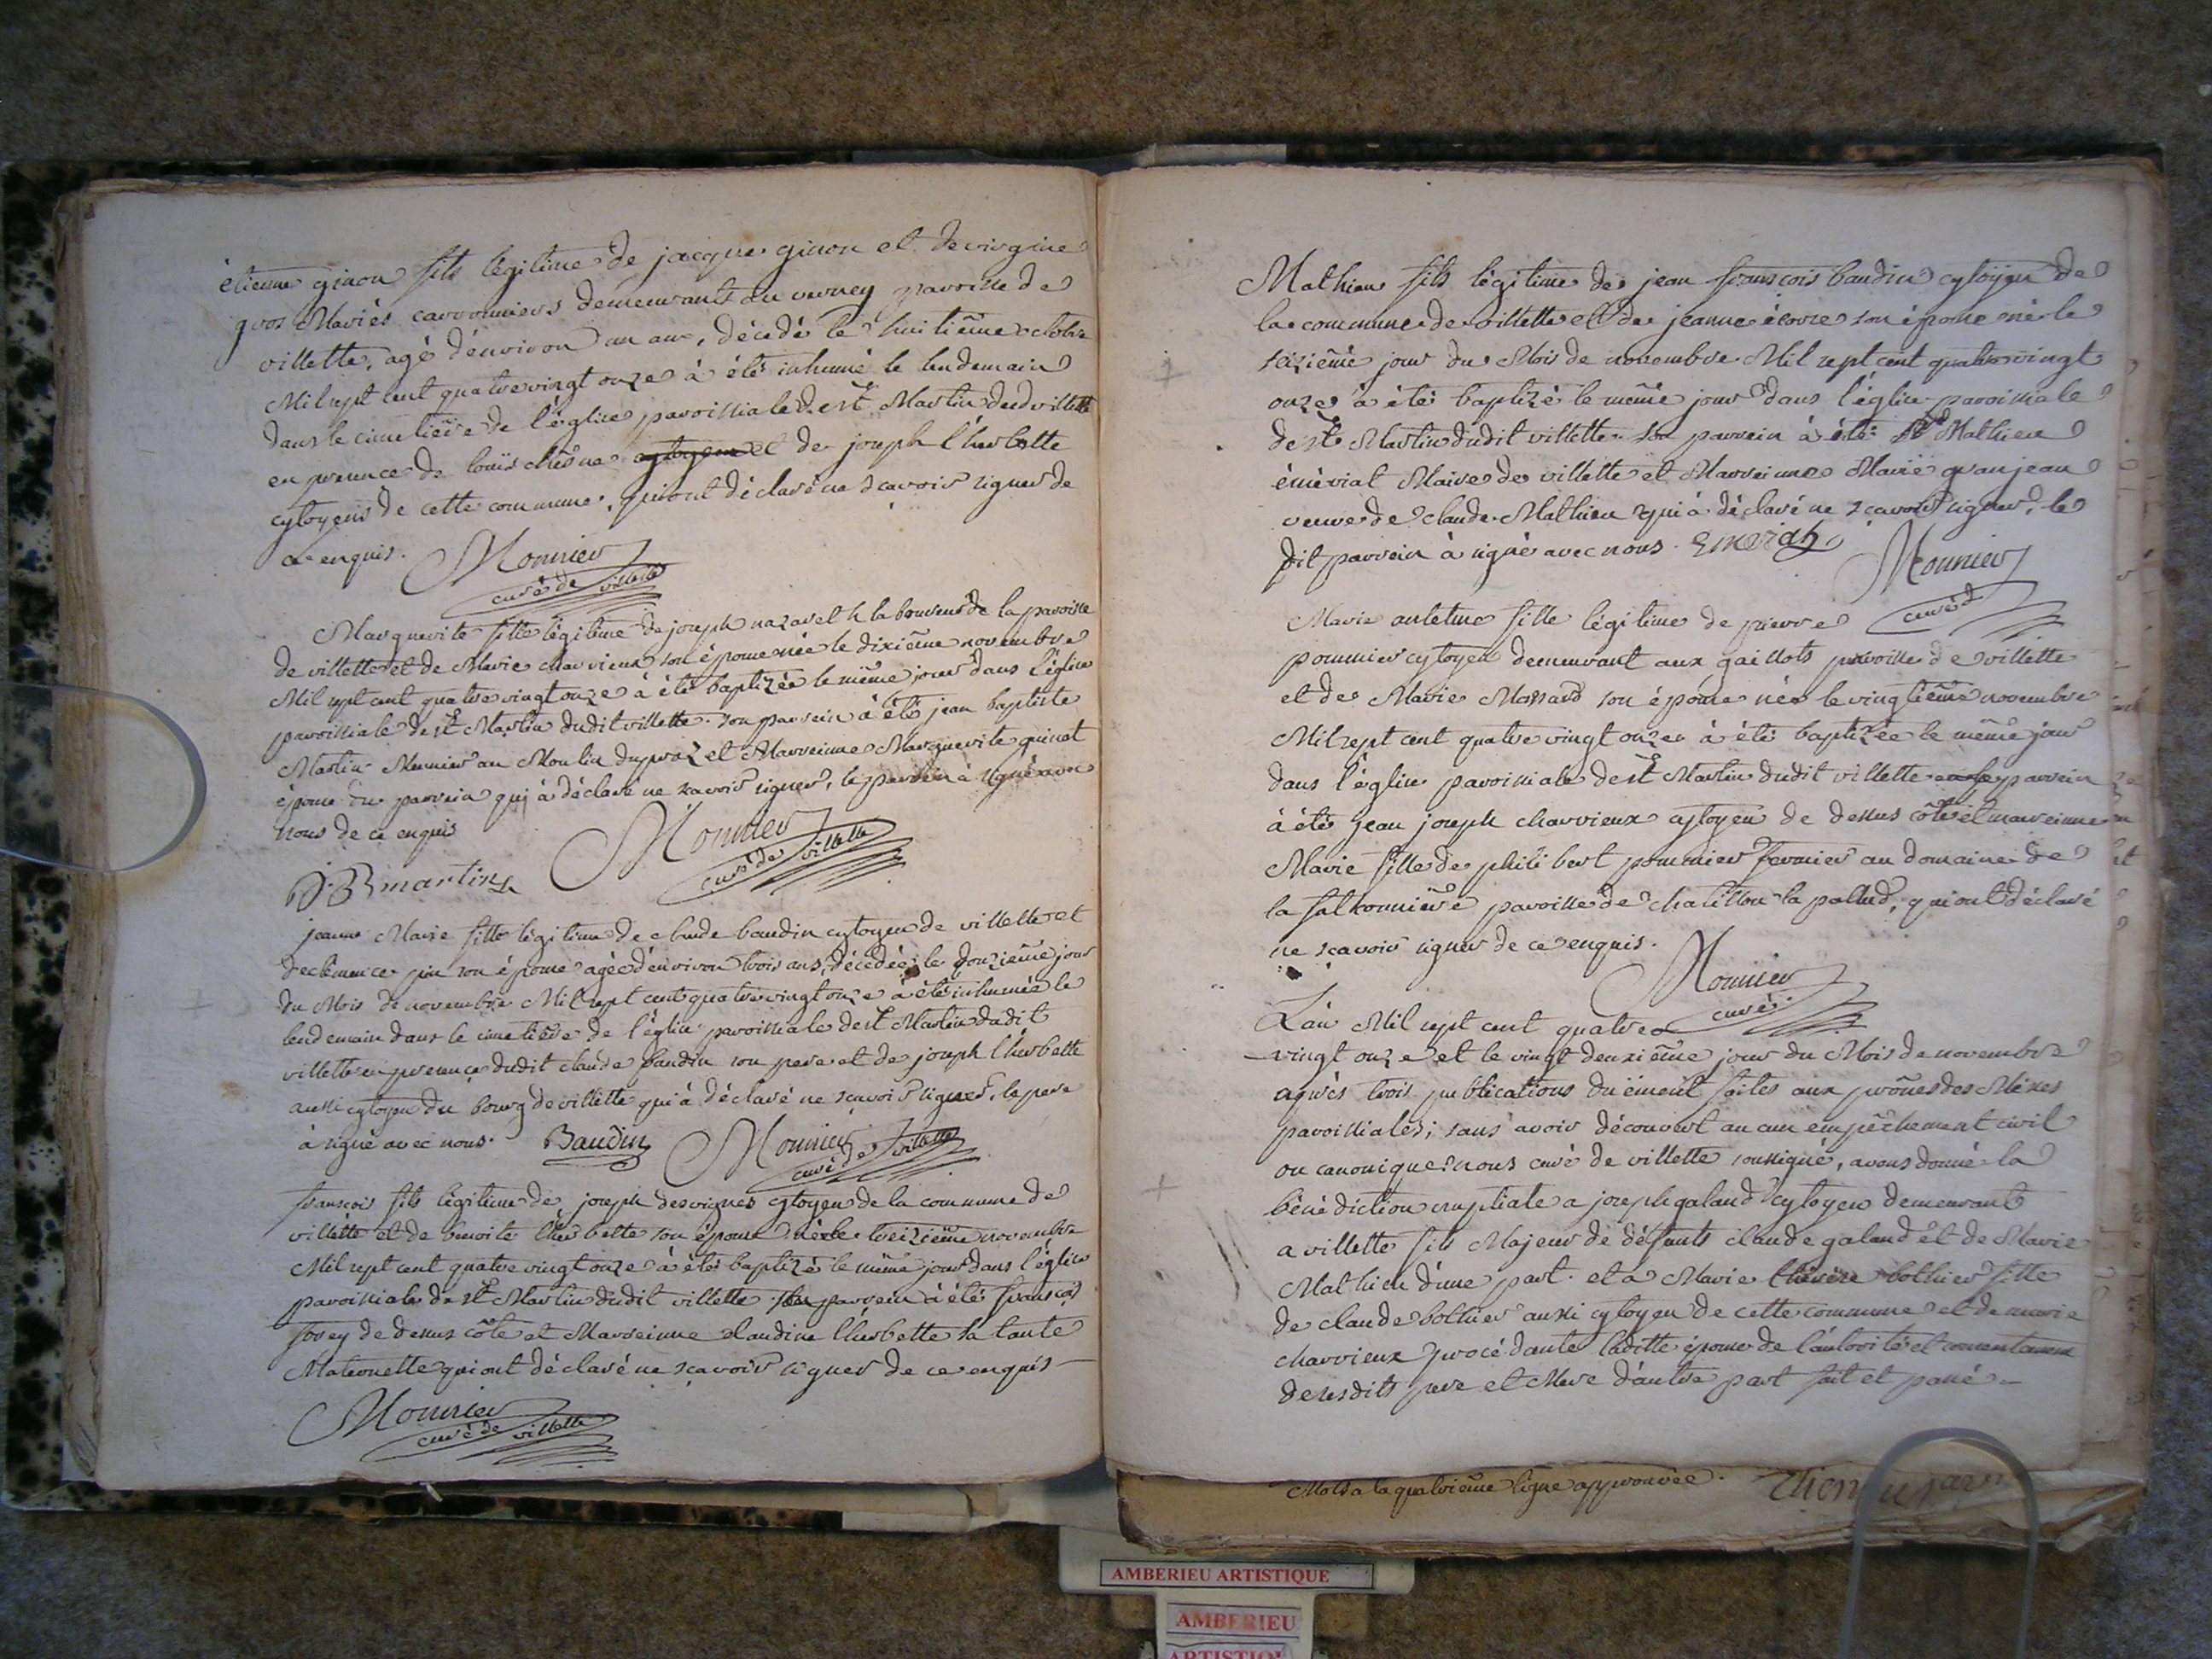 étienne ginon fils légitime de jacque ginon et de virgine
gros Mariés carronniers demeurants au verney paroisse de
villette, agé d'environ un an, décédé le huitième octobre
Mil sept cent quatre vingt onze à été inhumé le lendemain
dans le cimetière de l'église paroissiale de st Martin dud villette
en presence de louis chêne cytoyen et de joseph l'herbette
cytoyens de cette commune, qui ont déclaré ne scavoir signer de
ce enquis. Monnier
curé de villette
Marguerite fille légitime de joseph nazaret laboureur de la paroisse
de villette et de Marie charvieux son épouse née le dixième novembre
Mil sept cent quatre vingt onze à été baptizée le même jour dans l'église
paroissiale de st Martin dudit villette. son parrein à été jean baptiste
Martin Meunier au Moulin du praz et Marreinne Marguerite guinet
épouse du parrein qui à déclaré ne scavoir signer, le parrein à signé avec
nous de ce enquis
Monnier
curé de villette
J. B martin
jeanne Marie fille légitime de claude baudin cytoyen de villette et
de clemence pin son épouse agée d'environ trois ans, décédée le onzième jour
du Mois de novembre Mil sept cent quatre vingt onze à été inhumée le
lendemain dans le cimetière de l'église paroissiale de st Martin dudit
villette en presence dudit claude baudin son pere et de joseph l'herbette
aussi cytoyen du bourg de villette qui à déclaré ne scavoir signer, le pere
à signé avec nous. Baudin Monnier
curé de villette
françois fils légitime de joseph desvignes cytoyen de la commune de
villette et de benoite l'herbette son épouse né le treizième novembre
Mil sept cent quatre vingt onze à été baptizé le même jour dans l'église
paroissiale de st Martin dudit villette. son parrein à été françois
de dessus côte et Marreinne claudine l'herbette sa tante
Maternelle qui ont déclaré ne scavoir signer de ce enquis
Monnier
curé de villette
Mathieu fils légitime de jean françois baudin cytoyen de
la commune de villette et de jeanne son épouse né le
seizième jour du Mois de novembre Mil sept cent quatre vingt
onze à été baptizé le même jour dans l'église paroissiale
de st Martin dudit villette. son parrein à été Mathieu
émériat Maire de villette et Marreinne Marie granjean
veuve de claude Mathieu qui à déclaré ne scavoir signer, le
dit parrein à signé avec nous. Emeriat
Monnier
curé d
Marie antelme fille légitime de pierre
pommier cytoyen demeurant aux gaillots paroisse de villette
et de Marie Monnard son épouse née le vingtième novembre
Mil sept cent quatre vingt onze à été baptizée le même jour
dans l'église paroissiale de st Martin dudit villette parrein
à été jean joseph charvieux cytoyen de dessus côte et marreinne
Marie fille de philibert pommier fermier au domaine de
la paroisse de chatillon la pallud, qui ont déclaré
ne scavoir signer de ce enquis.
Monnier
curé
L'an Mil sept cent quatre
vingt onze et le vingt deuxième jour du Mois de novembre
après trois publications duëment faites aux prônes des Messes
paroissiales, sans avoir découvert aucun empêchement civil
ou canonique nous curé de villette soussigné, avons donné la
bénédiction nuptiale a joseph galand cytoyen demeurant
a villette fils Majeur de défunts claude galand et de Marie
Mathieu d'une part. et a Marie thérèse bothier fille
de claude bothier aussi cytoyen de cette commune et de marie
charvieux procédante laditte épouse de l'autorité et consentement
de sesdits pere et Mere d'autre part fait et passé
Mots a la quatrième ligne approuvée.
AMBERIEU ARTISTIQUE
AMBERIEU
ARTISTIQUE